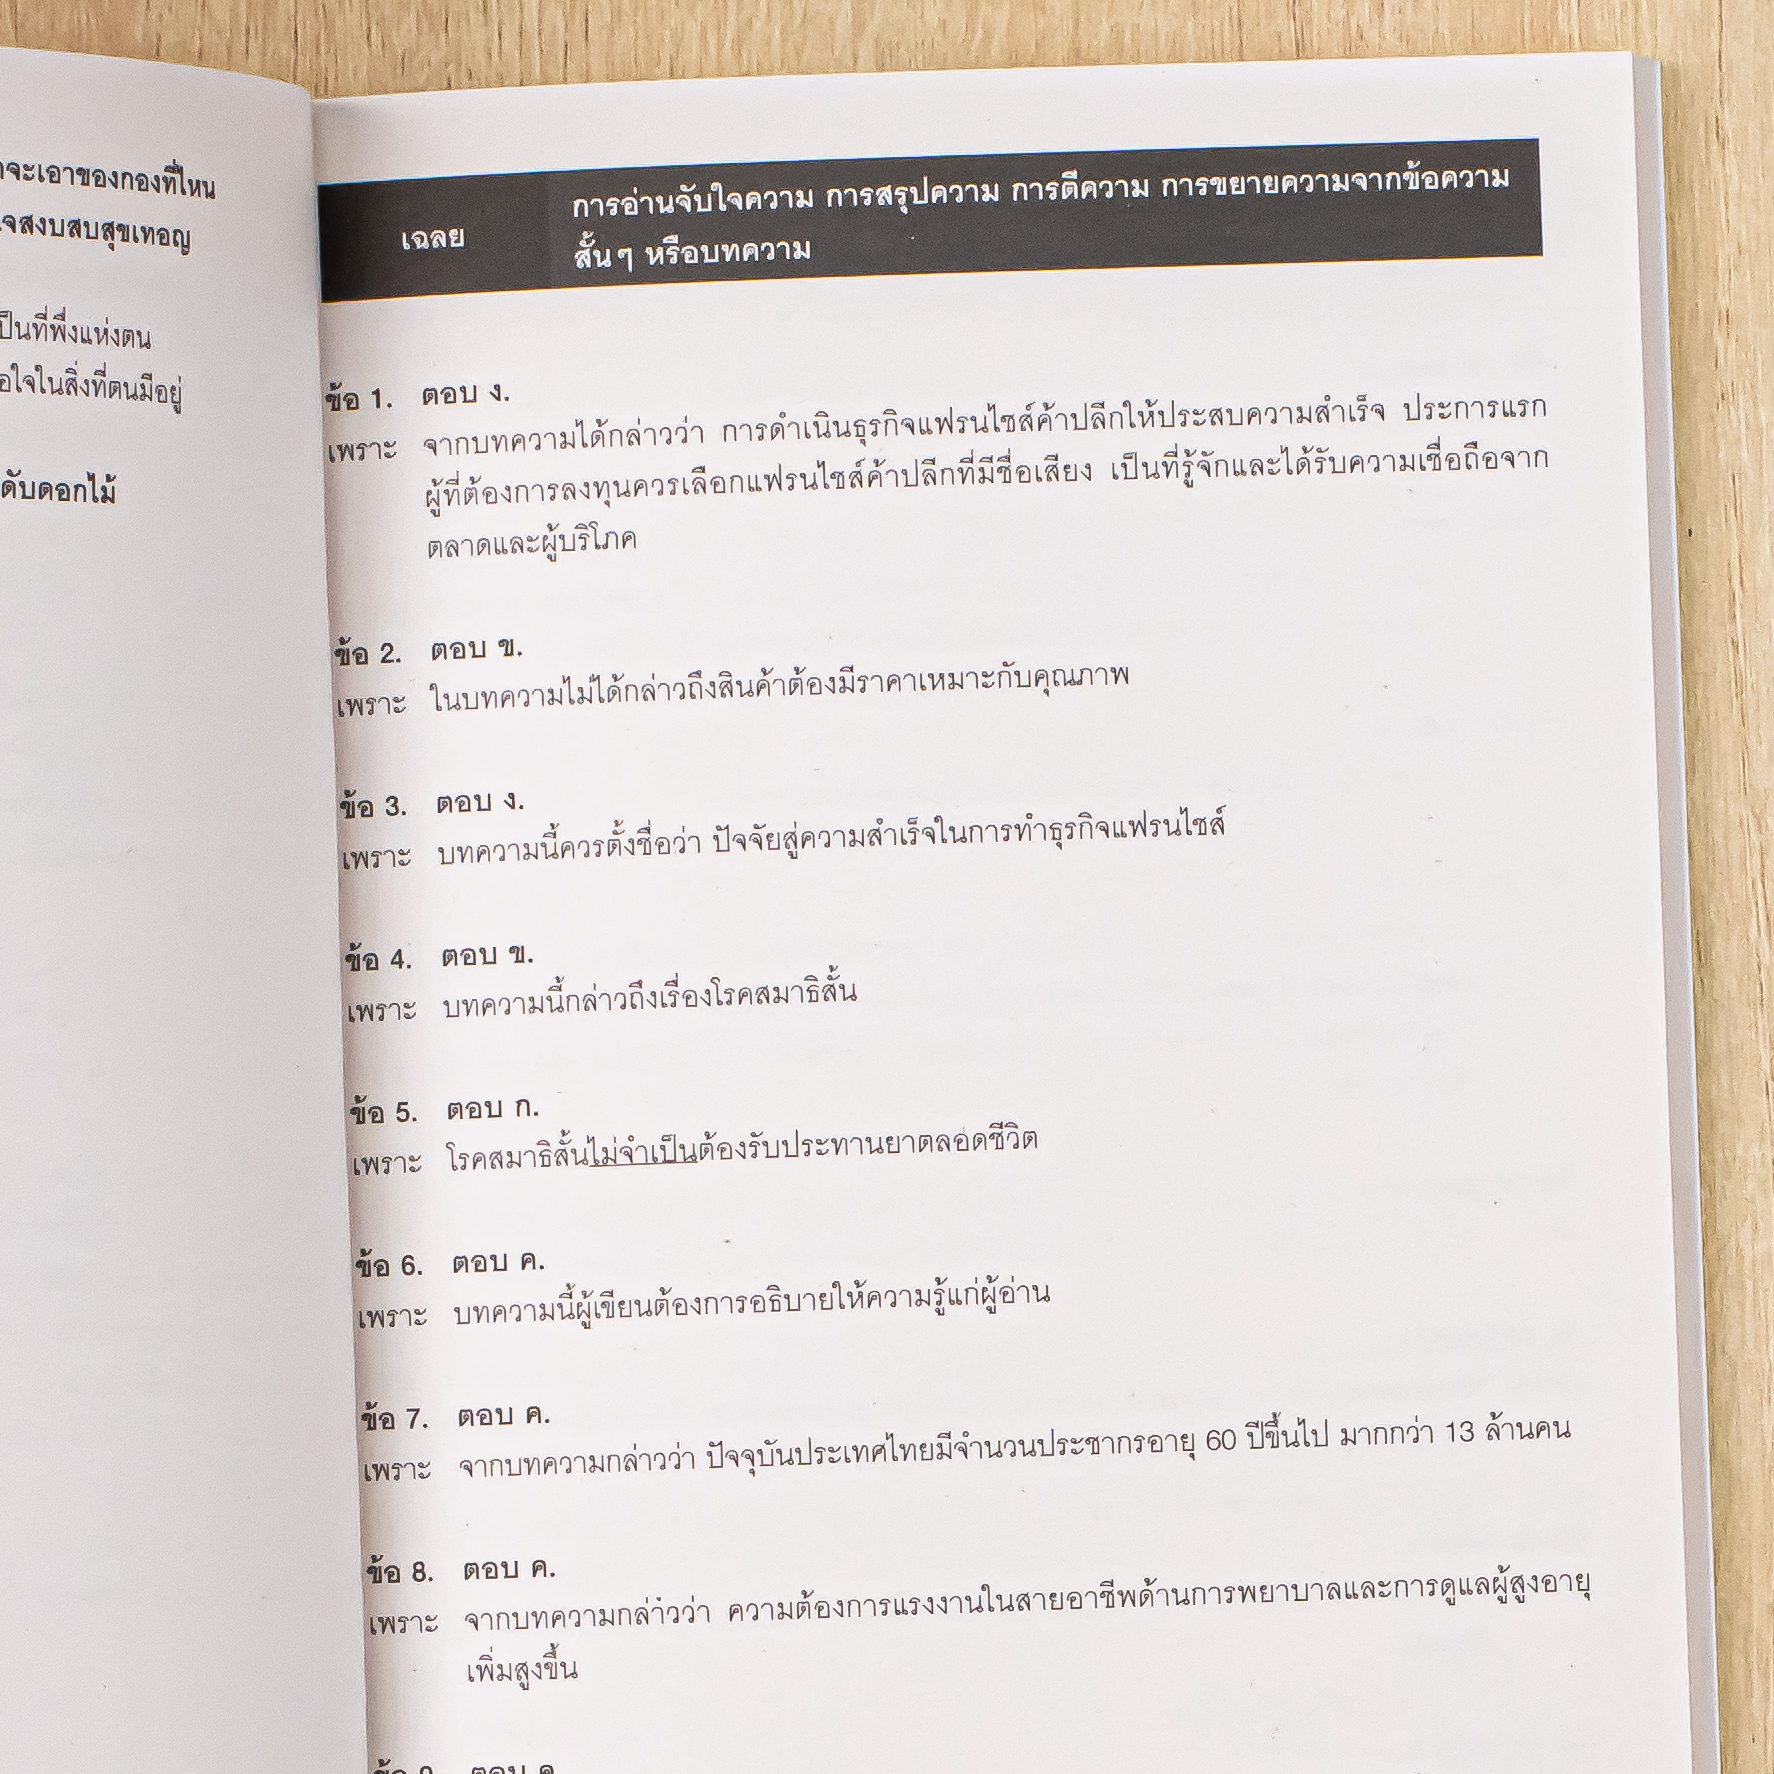 จะเอาของกองที่ไหน
ใจสงบสบสุขเทอญ
เป็นที่พึ่งแห่งตน
ในสิ่งที่ตนมีอยู่
ดับดอกไม้
เฉลย
การอ่านจับใจความ การสรุปความ การตีความ การขยายความจากข้อความ
สั้นๆ หรือบทความ
ข้อ 1. ตอบ ง.
เพราะ จากบทความได้กล่าวว่า การดำเนินธุรกิจแฟรนไชส์ค้าปลีกให้ประสบความสำเร็จ ประการแรก
ผู้ที่ต้องการลงทุนควรเลือกแฟรนไชส์ค้าปลีกที่มีชื่อเสียง เป็นที่รู้จักและได้รับความเชื่อถือจาก
ตลาดและผู้บริโภค
ข้อ 2. ตอบ ข.
เพราะ ในบทความไม่ได้กล่าวถึงสินค้าต้องมีราคาเหมาะกับคุณภาพ
ข้อ 3. ตอบ ง.
เพราะ บทความนี้ควรตั้งชื่อว่า ปัจจัยสู่ความสำเร็จในการทำธุรกิจแฟรนไชส์
ข้อ 4. ตอบ ข.
เพราะ บทความนี้กล่าวถึงเรื่องโรคสมาธิสั้น
ข้อ 5. ตอบ ก.
เพราะ โรคสมาธิสั้นไม่จำเป็นต้องรับประทานยาตลอดชีวิต
ข้อ 6. ตอบ ค.
เพราะ บทความนี้ผู้เขียนต้องการอธิบายให้ความรู้แก่ผู้อ่าน
ข้อ 7. ตอบ ค.
เพราะ จากบทความกล่าวว่า ปัจจุบันประเทศไทยมีจำนวนประชากรอายุ 60 ปีขึ้นไป มากกว่า 13 ล้านคน
ข้อ 8. ตอบ ค.
เพราะ จากบทความกล่าวว่า ความต้องการแรงงานในสายอาชีพด้านการพยาบาลและการดูแลผู้สูงอายุ
เพิ่มสูงขึ้น